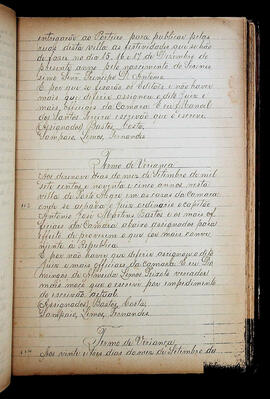 entregação ao Porteiro para publicar pelas
ruas desta villa as festividades que se hão
de fazer no dia 15, 16 e 17 de Dezembro do
presente anno pelo nascimento do Serenis-
simo Senr. Principe D. Antonio
E por que se fizerão os Editaes e não haver
mais que deferir assignou o dito Juiz e
mais officiaes da Camara. Eu Manoel
dos Santos Pereira escrivão que o escrevi
(Assignados) Bastos, Costa,
Sampaio, Lemos, Fernandes
Termo de Veriança
Aos desenove dias do mez de Setembro de mil
sete centos e noventa e cinco annos, nesta
villa de Porto Alegre em as casas da Camara
onde se achava o Juiz ordinario o Capitão
Antonio José Martins Bastos e os mais of-
ficiaes da Camara abaixo assignados para
effeito de proverem o que fôr mais conve-
niente á Republica.
E por não haver que deferir assignou o dito
Juiz e mais officiaes da Camara. Eu Do-
mingos de Almeida Lemos Peixoto vereador
mais moço que o escrevi por impedimento
do escrivão actual.
(Assignados) Bastos, Costa,
Sampaio, Lemos, Fernandes.
Termo de Veriança
Aos vinte e seis dias do mez de Setembro de